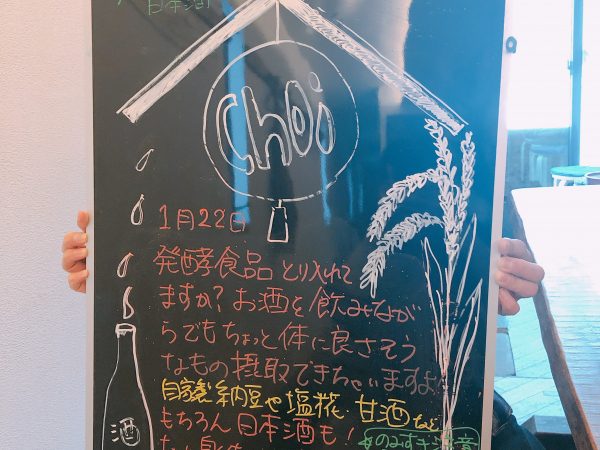 日本酒
Choi
1月22日
発酵食品 とり入れて
ますか?お酒を飲みながら
らでもちょっと体に良さそう
なもの摂取できちゃいますよ!
自家製納豆や塩糀、甘酒など
もちろん日本酒も!
☆のみすぎ注意
酒